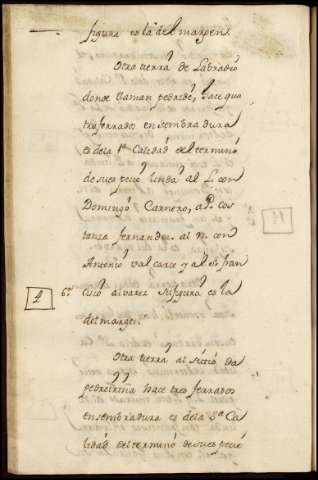 figura es la del margen.
Otra tierra de Labradio
donde llaman pedrede, hace qua
tro ferrados en sembradura
es dela 1ª Calidad del termino
de su especie linda al L. con
Domingo Carnero, al P. cos
tanza fernandez. al N. con
Antonio valcarce y al S. fran
4 6º cisco alvarez su figura es la
del margen.
Otra tierra al sitio da
pedreiriña hace tres ferrados
en sembradura es dela 3ª Ca
lidad del termino de su especie